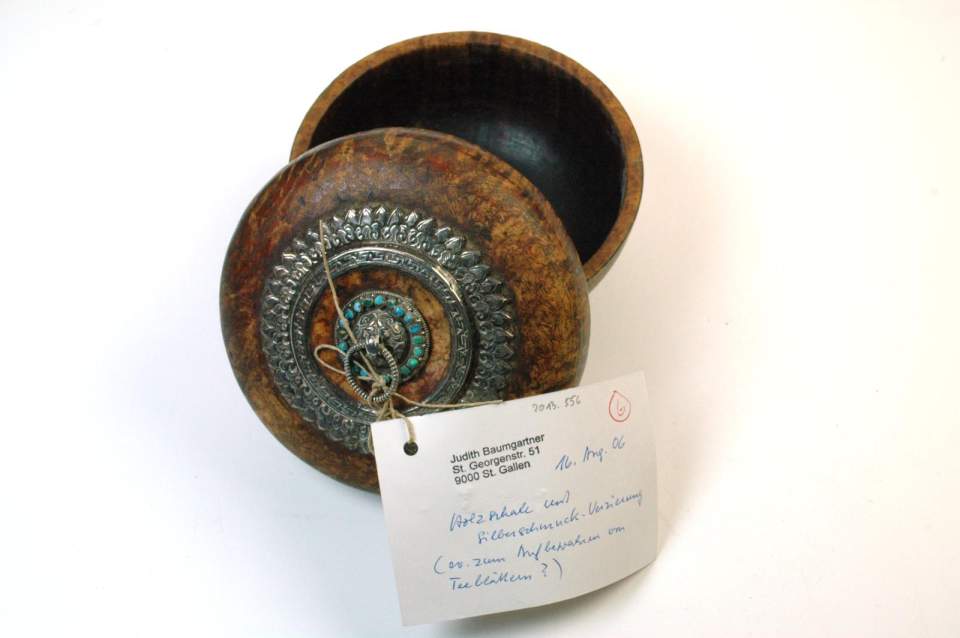 2013.556
6
Judith Baumgartner
St. Georgenstr. 51
9000 St. Gallen
16. Aug. 06
Holzschale und
Silberschmuck-Verzierung
(ev. zum Aufbewahren von
Teeblättern?)